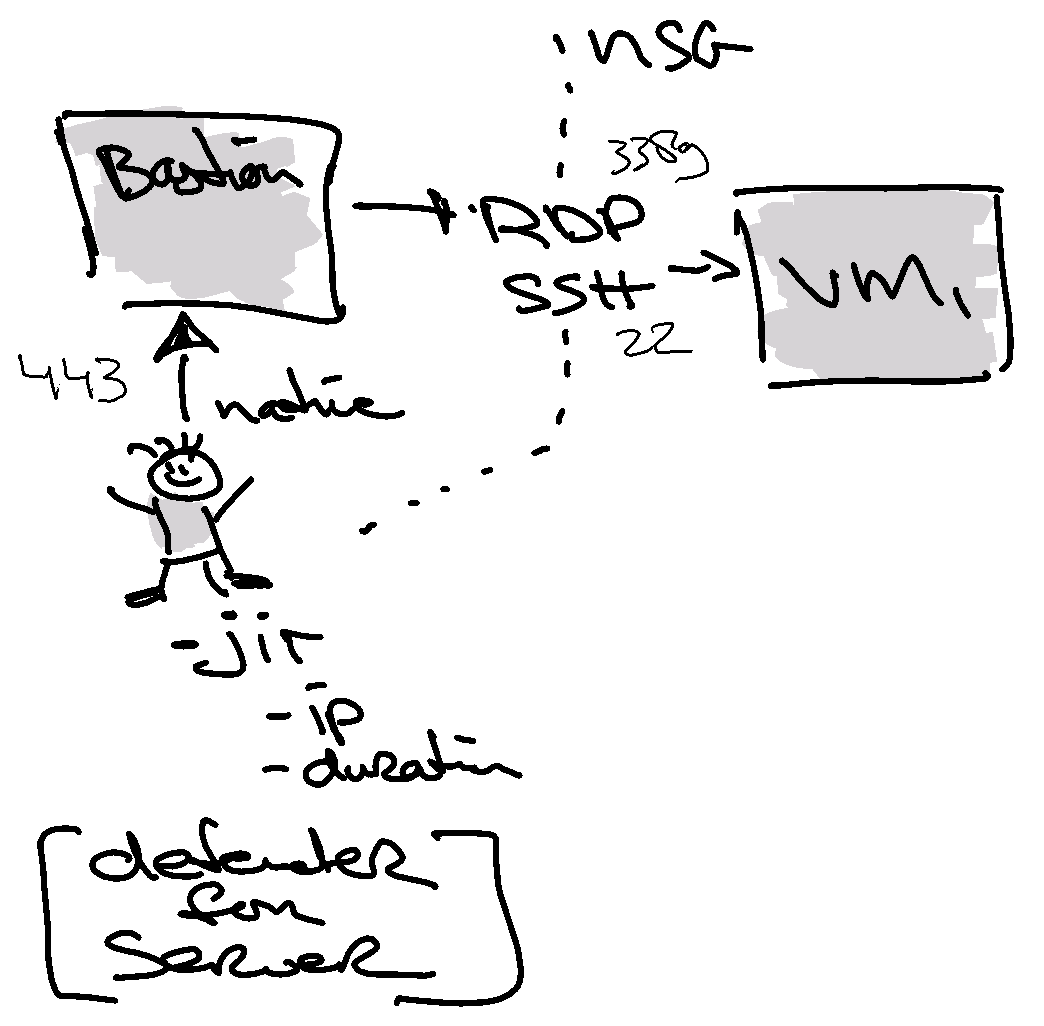 NSG
Bastion
3389
RDP
SSH
22
VM1
443
native
- jit
- ip
- duration
defender
for
Server